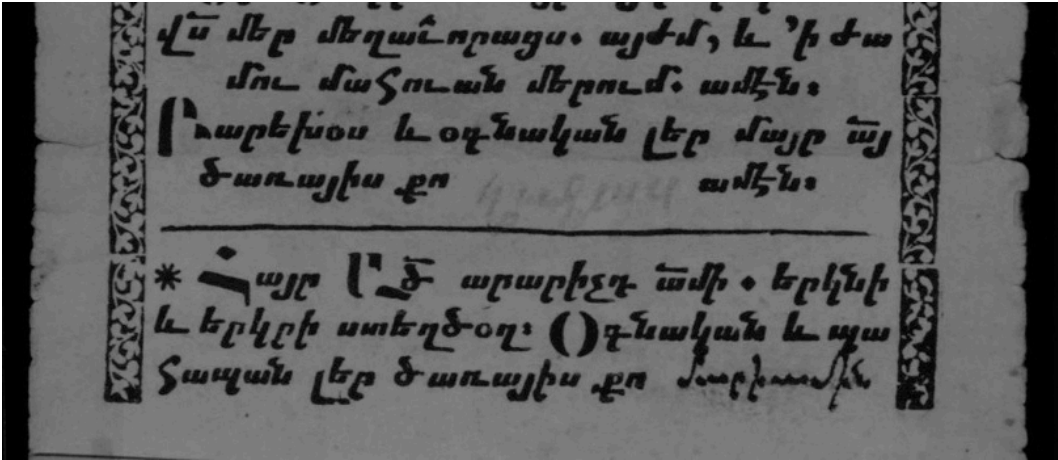 վս̅ մեր մեղաւորացս. այժմ, և ՚ի ժա
մու մահուան մերում. ամէն։
Բարեխօս և օգնական լեր մայր ա̅յ
ծառայիս քո ամէն։
* Հայր Ա̅ծ արարիչդ ա̅մի . երկնի
և երկրի ստեղծօղ։ Օգնական և պա
հապան լեր ծառայիս քո